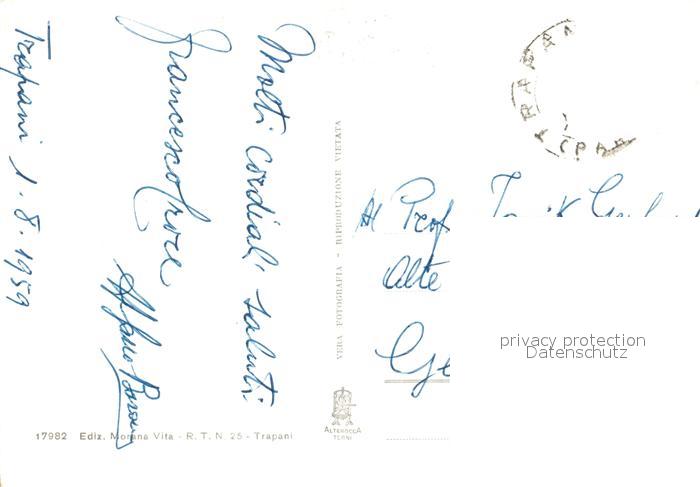 Trapani 1.8.1959
Molti cordiali saluti
Francesco
VERA FOTOGRAFIA - RIPRODUZIONE VIETATA
TRAPANI
Al Prof
Alte
privacy protection
Datenschutz
ALTEROCCA
TERNI
17982 Ediz. Morana Vita - R. T. N. 25 - Trapani